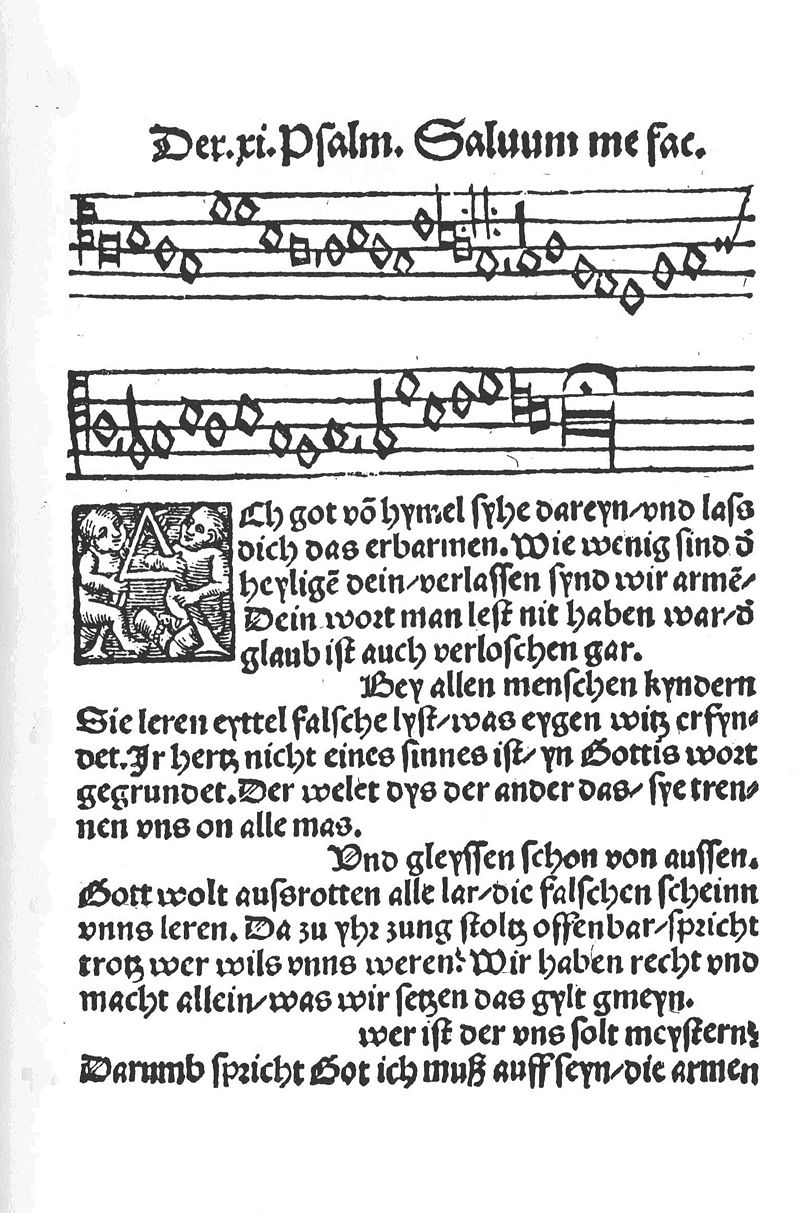 Der.xi.Psalm. Saluum me fac.
ACh got võ hymel syhe dareyn/vnd lass
dich das erbarmen.Wie wenig sind d̃
heyligẽ dein/verlassen synd wir armẽ/
Dein wort man lest nit haben war/d̃
glaub ist auch verloschen gar.
Bey allen menschen kyndern
Sie leren eyttel falsche lyst/was eygen witz erfyn⸗
det.Jr hertz nicht eines sinnes ist/ yn Gottis wort
gegrundet.Der welet dys der ander das/ sye tren⸗
nen vns on alle mas.
Vnd gleyssen schon von aussen.
Gott wolt aussrotten alle lar/die falschen scheinn
vnns leren. Da zu yhr zung stoltz offenbar/spricht
trotz wer wils vnns weren? Wir haben recht vnd
macht allein/was wir setzen das gylt gmeyn.
wer ist der vns solt meystern?
Darumb spricht Got ich muß auff seyn/die armen